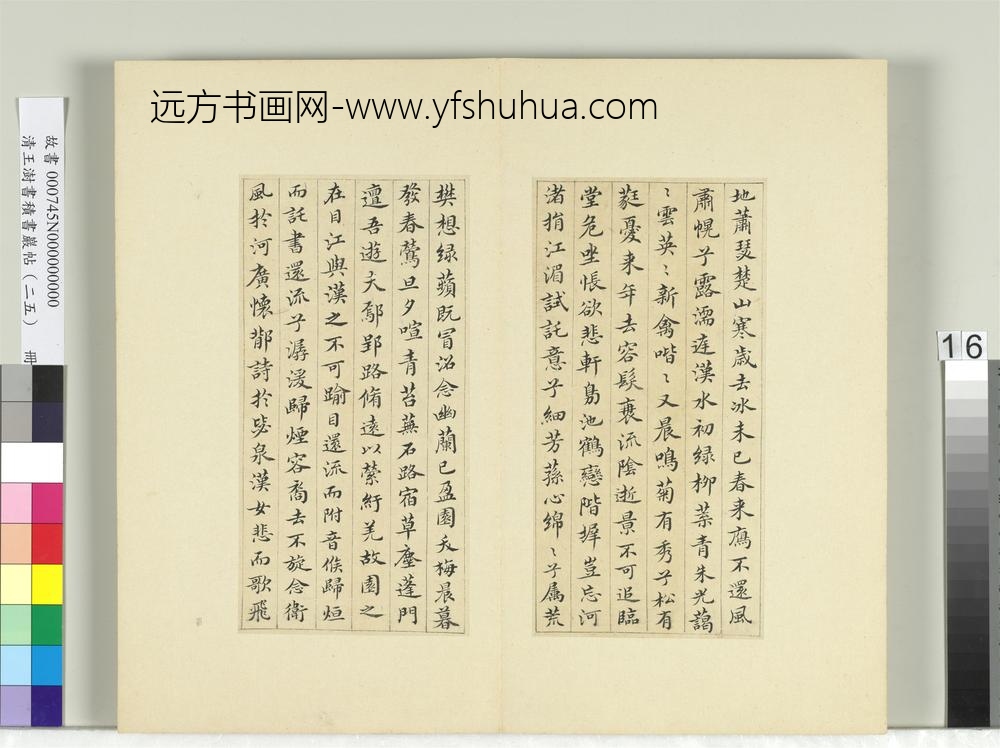 远方书画网-www.yfshuhua.com
地蕭瑟楚山寒歲去冰未已春来鴈不還風
肅幌兮露濡庭漢水初緑柳葉青朱光藹
〻雲英〻新禽喈〻又晨鳴菊有秀兮松有
蕤憂来年去容髮衰流陰逝景不可追臨
堂危坐悵欲悲軒鳥池鶴戀階墀豈忘河
渚捐江湄試託意兮細芳蓀心綿〻兮属荒
樊想緑蘋既冒沼念幽蘭已盈園夭梅晨暮
發春鶯旦夕喧青苔蕪石路宿草塵蓬門
邅吾遊夫鄢郢路脩遠以縈紆羌故園之
在目江與漢之不可踰目還流而附音候歸烟
而託書還流兮潺湲歸煙容裔去不旋念衛
風於河廣懷鄁詩於毖泉漢女悲而歌飛
故書 000745N000000000
清王澍書積書巖帖（二五） 冊
16